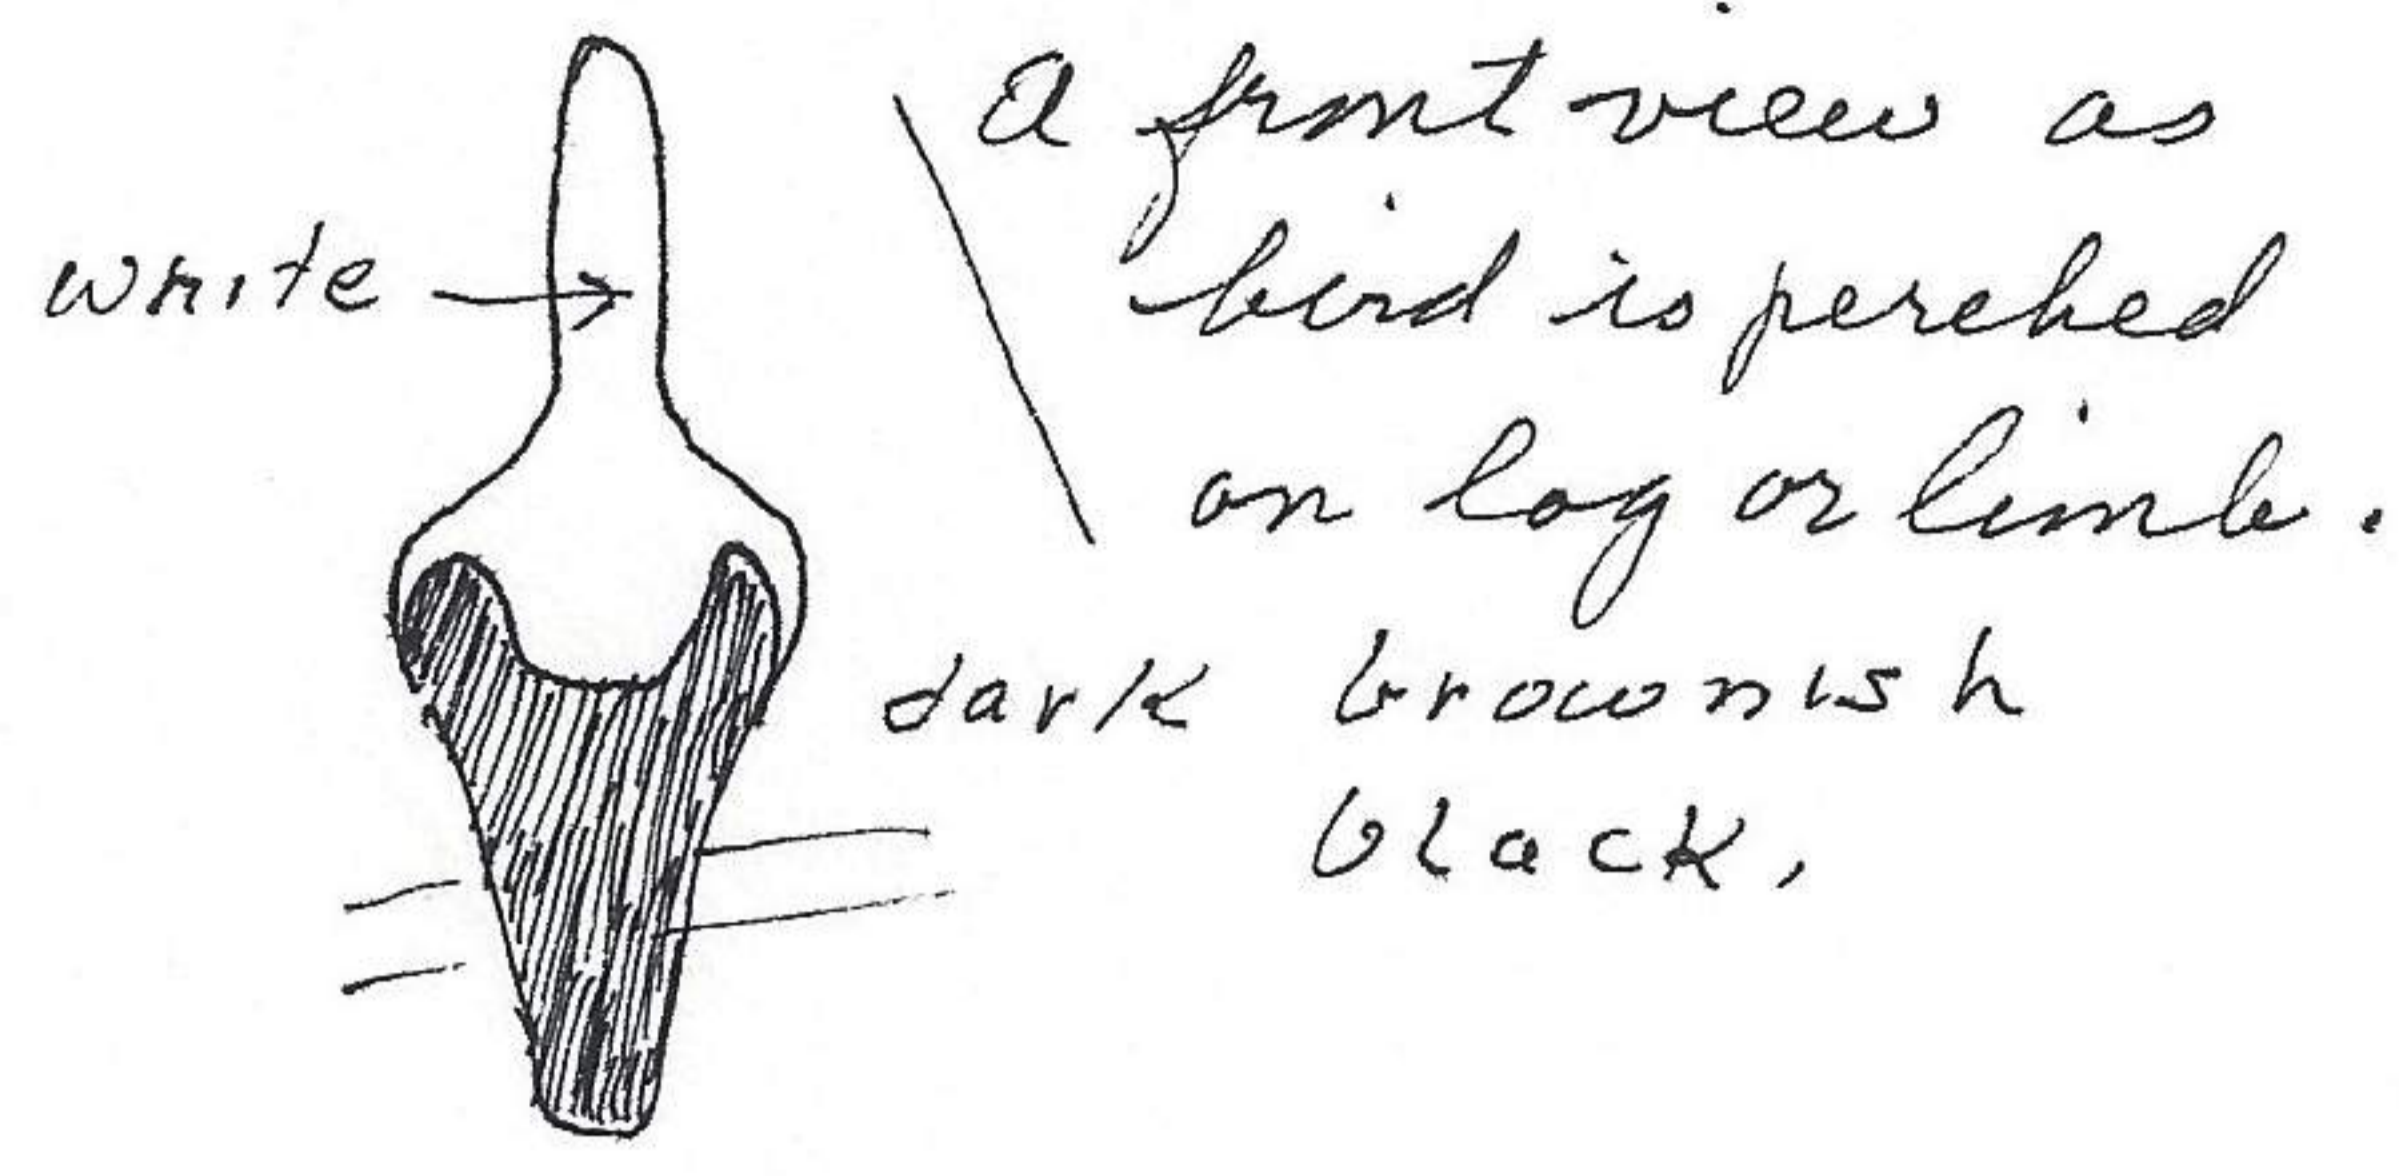 a front view as
white
bird is perched
on log or limb.
dark brownish
black,